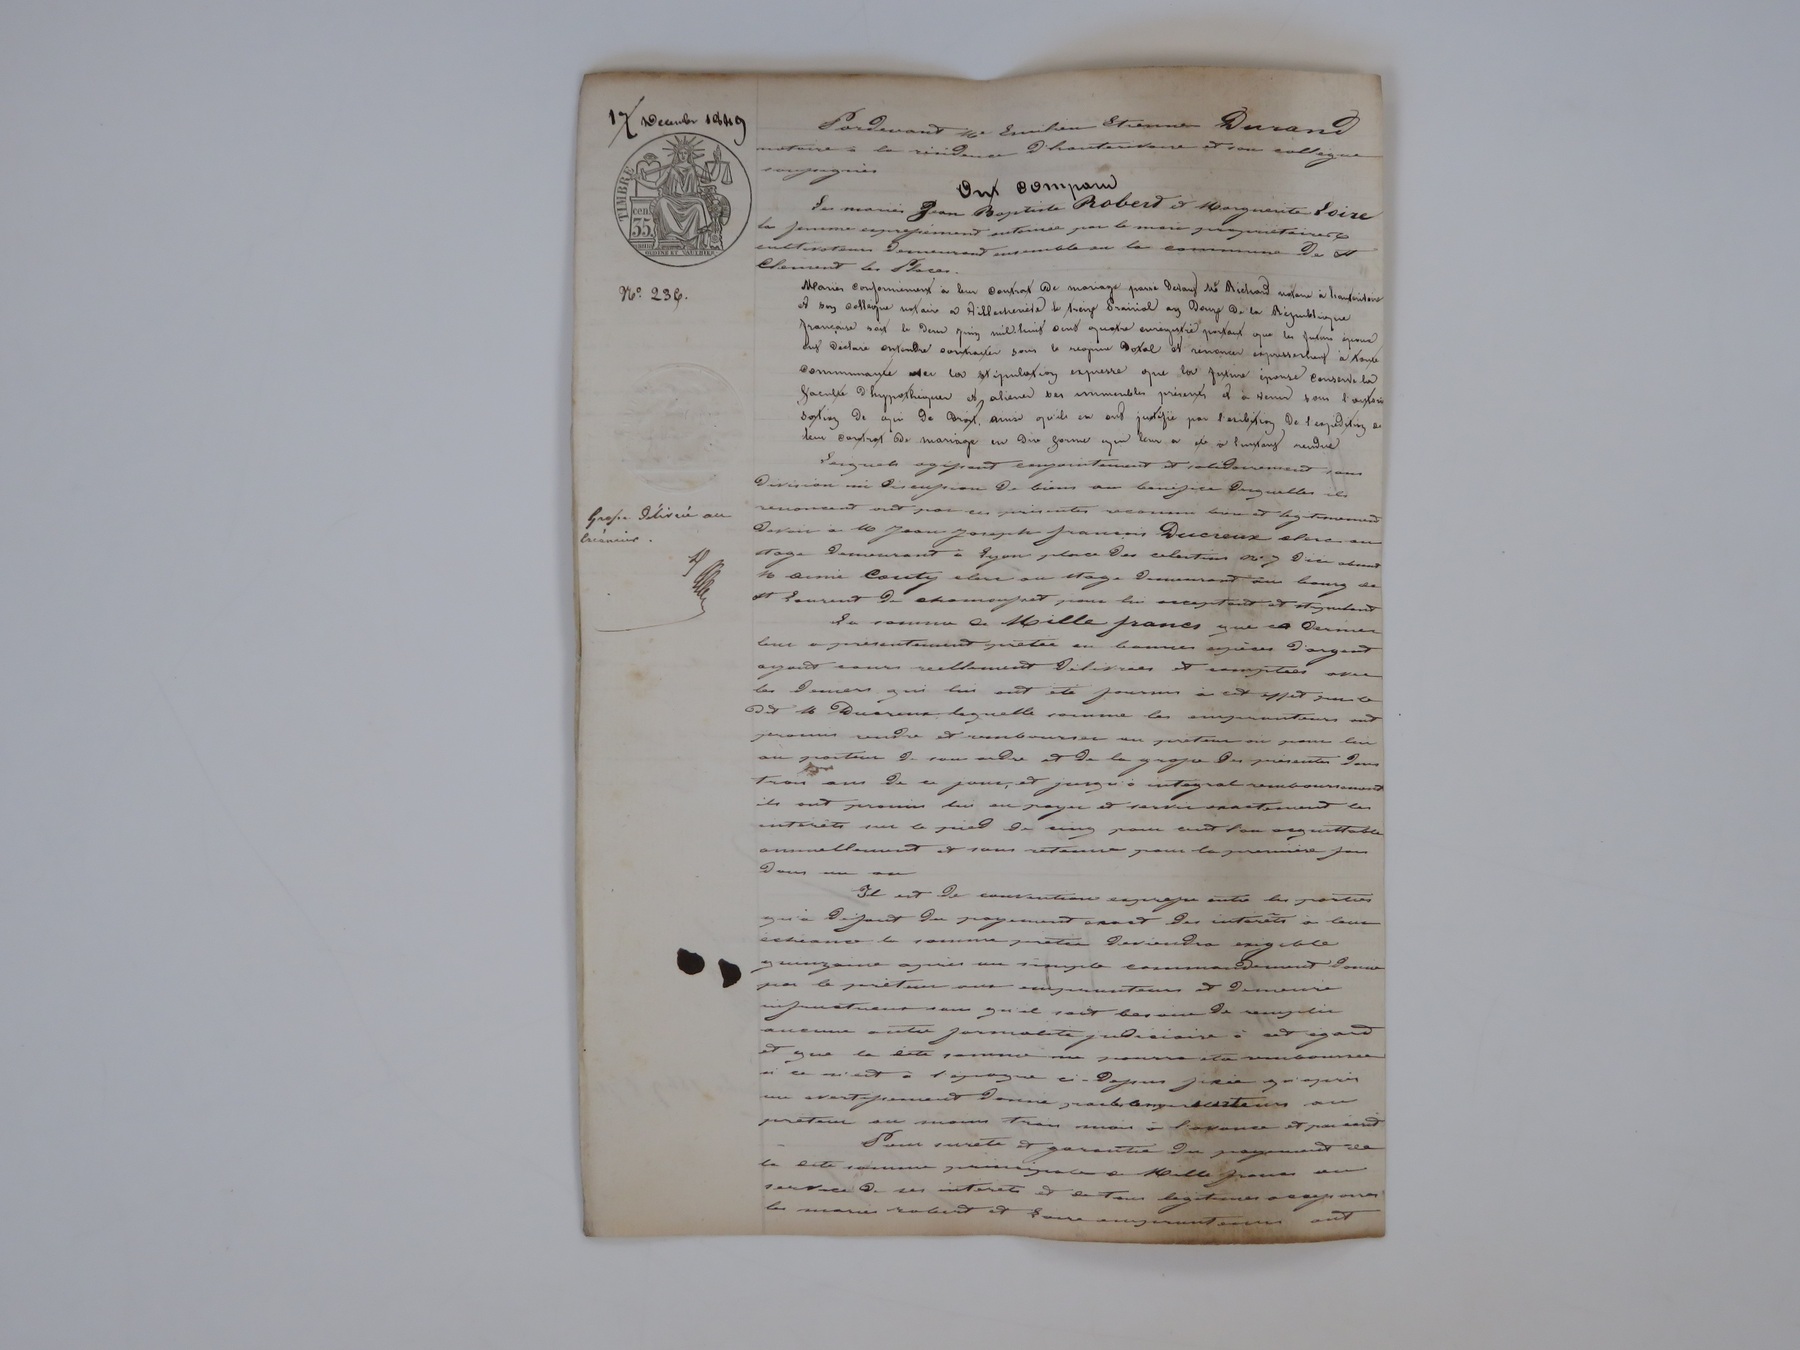 17 Décembre 1849
TIMBRE
cen.
35.
N° 236.
Grosse délivrée au
créancier.
Pardevant Me Emilien Etienne Durand
notaire à la résidence d'hauterivoire et son collègue
soussignés
Ont comparu
Les mariés Jean Baptiste Robert et Marguerite Loire
la femme expressément autorisée par le mari propriétaires &
cultivateurs demeurant ensemble sur la commune de St
Clément les Places.
Mariés conformément à leur contrat de mariage passé devant Me Richard notaire à hauterivoire
et son collègue notaire à Villechenève le treize Prairial an Douze de la République
française soit le deux juin mil huit cent quatre enregistré portant que les futurs époux
ont déclaré entendre contracter sous le régime Dotal et renoncer expressément à toute
communauté avec la stipulation expresse que la future épouse conserve la
faculté d'hypothéquer et aliéner ses immeubles présents et à venir sous l'autori
sation de qui de Droit, ainsi qu'ils en ont justifié par l'exibition de l'expédition de
leur contrat de mariage en due forme qui leur a été à l'instant rendue
Lesquels agissant conjointement et solidairement sans
division ni discussion de biens au bénéfice desquelles ils
renoncent ont par ces présentes reconnu bien et légitimement
devoir à M. Jean Joseph francois Ducreux clerc au
stage demeurant à Lyon place des celestins no 7 d'ici absent
M Couty clerc au stage demeurant au bourg de
St Laurent de chamousset pour lui acceptant et stipulant
La somme de Mille francs que ce dernier
leur a présentement prêtée en bonnes espèces d'argent
ayant cours réellement délivrées et comptées avec
les deniers qui lui ont été fournis à cet effet par le
dit M Ducreux laquelle somme les emprunteurs ont
promis rendre et rembourser au prêteur ou pour lui
au porteur de son ordre et de la grosse des présentes dans
trois ans de ce jour, et jusqu'à intégral remboursement
ils ont promis lui en payer et servir exactement les
intérêts sur le pied de cinq pour cent l'an acquittable
annuellement et sans retenue pour la première fois
dans un an
Il est de convention expresse entre les parties
qu'à défaut du payement exact des intérêts à leur
échéance la somme prêtée deviendra exigible
quinzaine après un simple commandement donné
par le prêteur aux emprunteurs et demeuré
infructueux sans qu'il soit besoin de remplir
aucune autre formalité judiciaire à cet égard
et que la dite somme ne pourra être remboursée
si ce n'est à l'époque ci-dessus fixée qu'après
un avertissement donné par les emprunteurs au
prêteur au moins trois mois à l'avance et par écrit
Pour sureté et garantie du payement de
la dite somme principale de Mille francs au
service de ses intérêts et de tous légitimes accessoires
les mariés robert et Loire emprunteurs ont